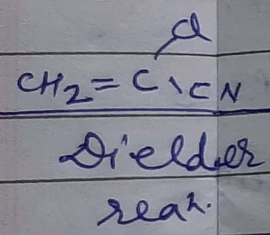 Cl
CH2=C\CN
Dielder
rean.